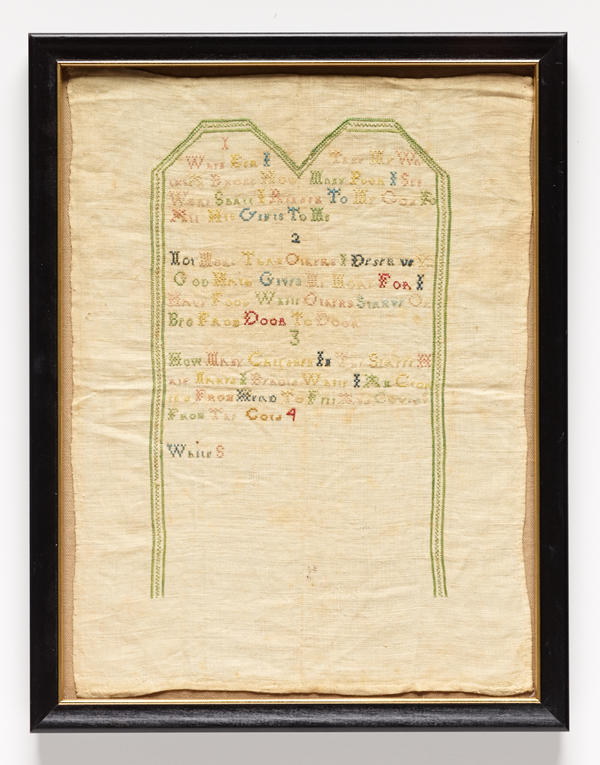 1
When Eer I Take My Wa
Abroad How Many Poor I See
What Shall I Render To My God Fo
All His Gifts To Me
2
Not More Than Others I Deserve
God Hath Given Me More For I
Have Food While Others Starve Or
Beg From Door To Door
3
How Many Children In The Street H
Naked I Behold While I Am Clot
From Head To Feet And
From The Cold 4
While S